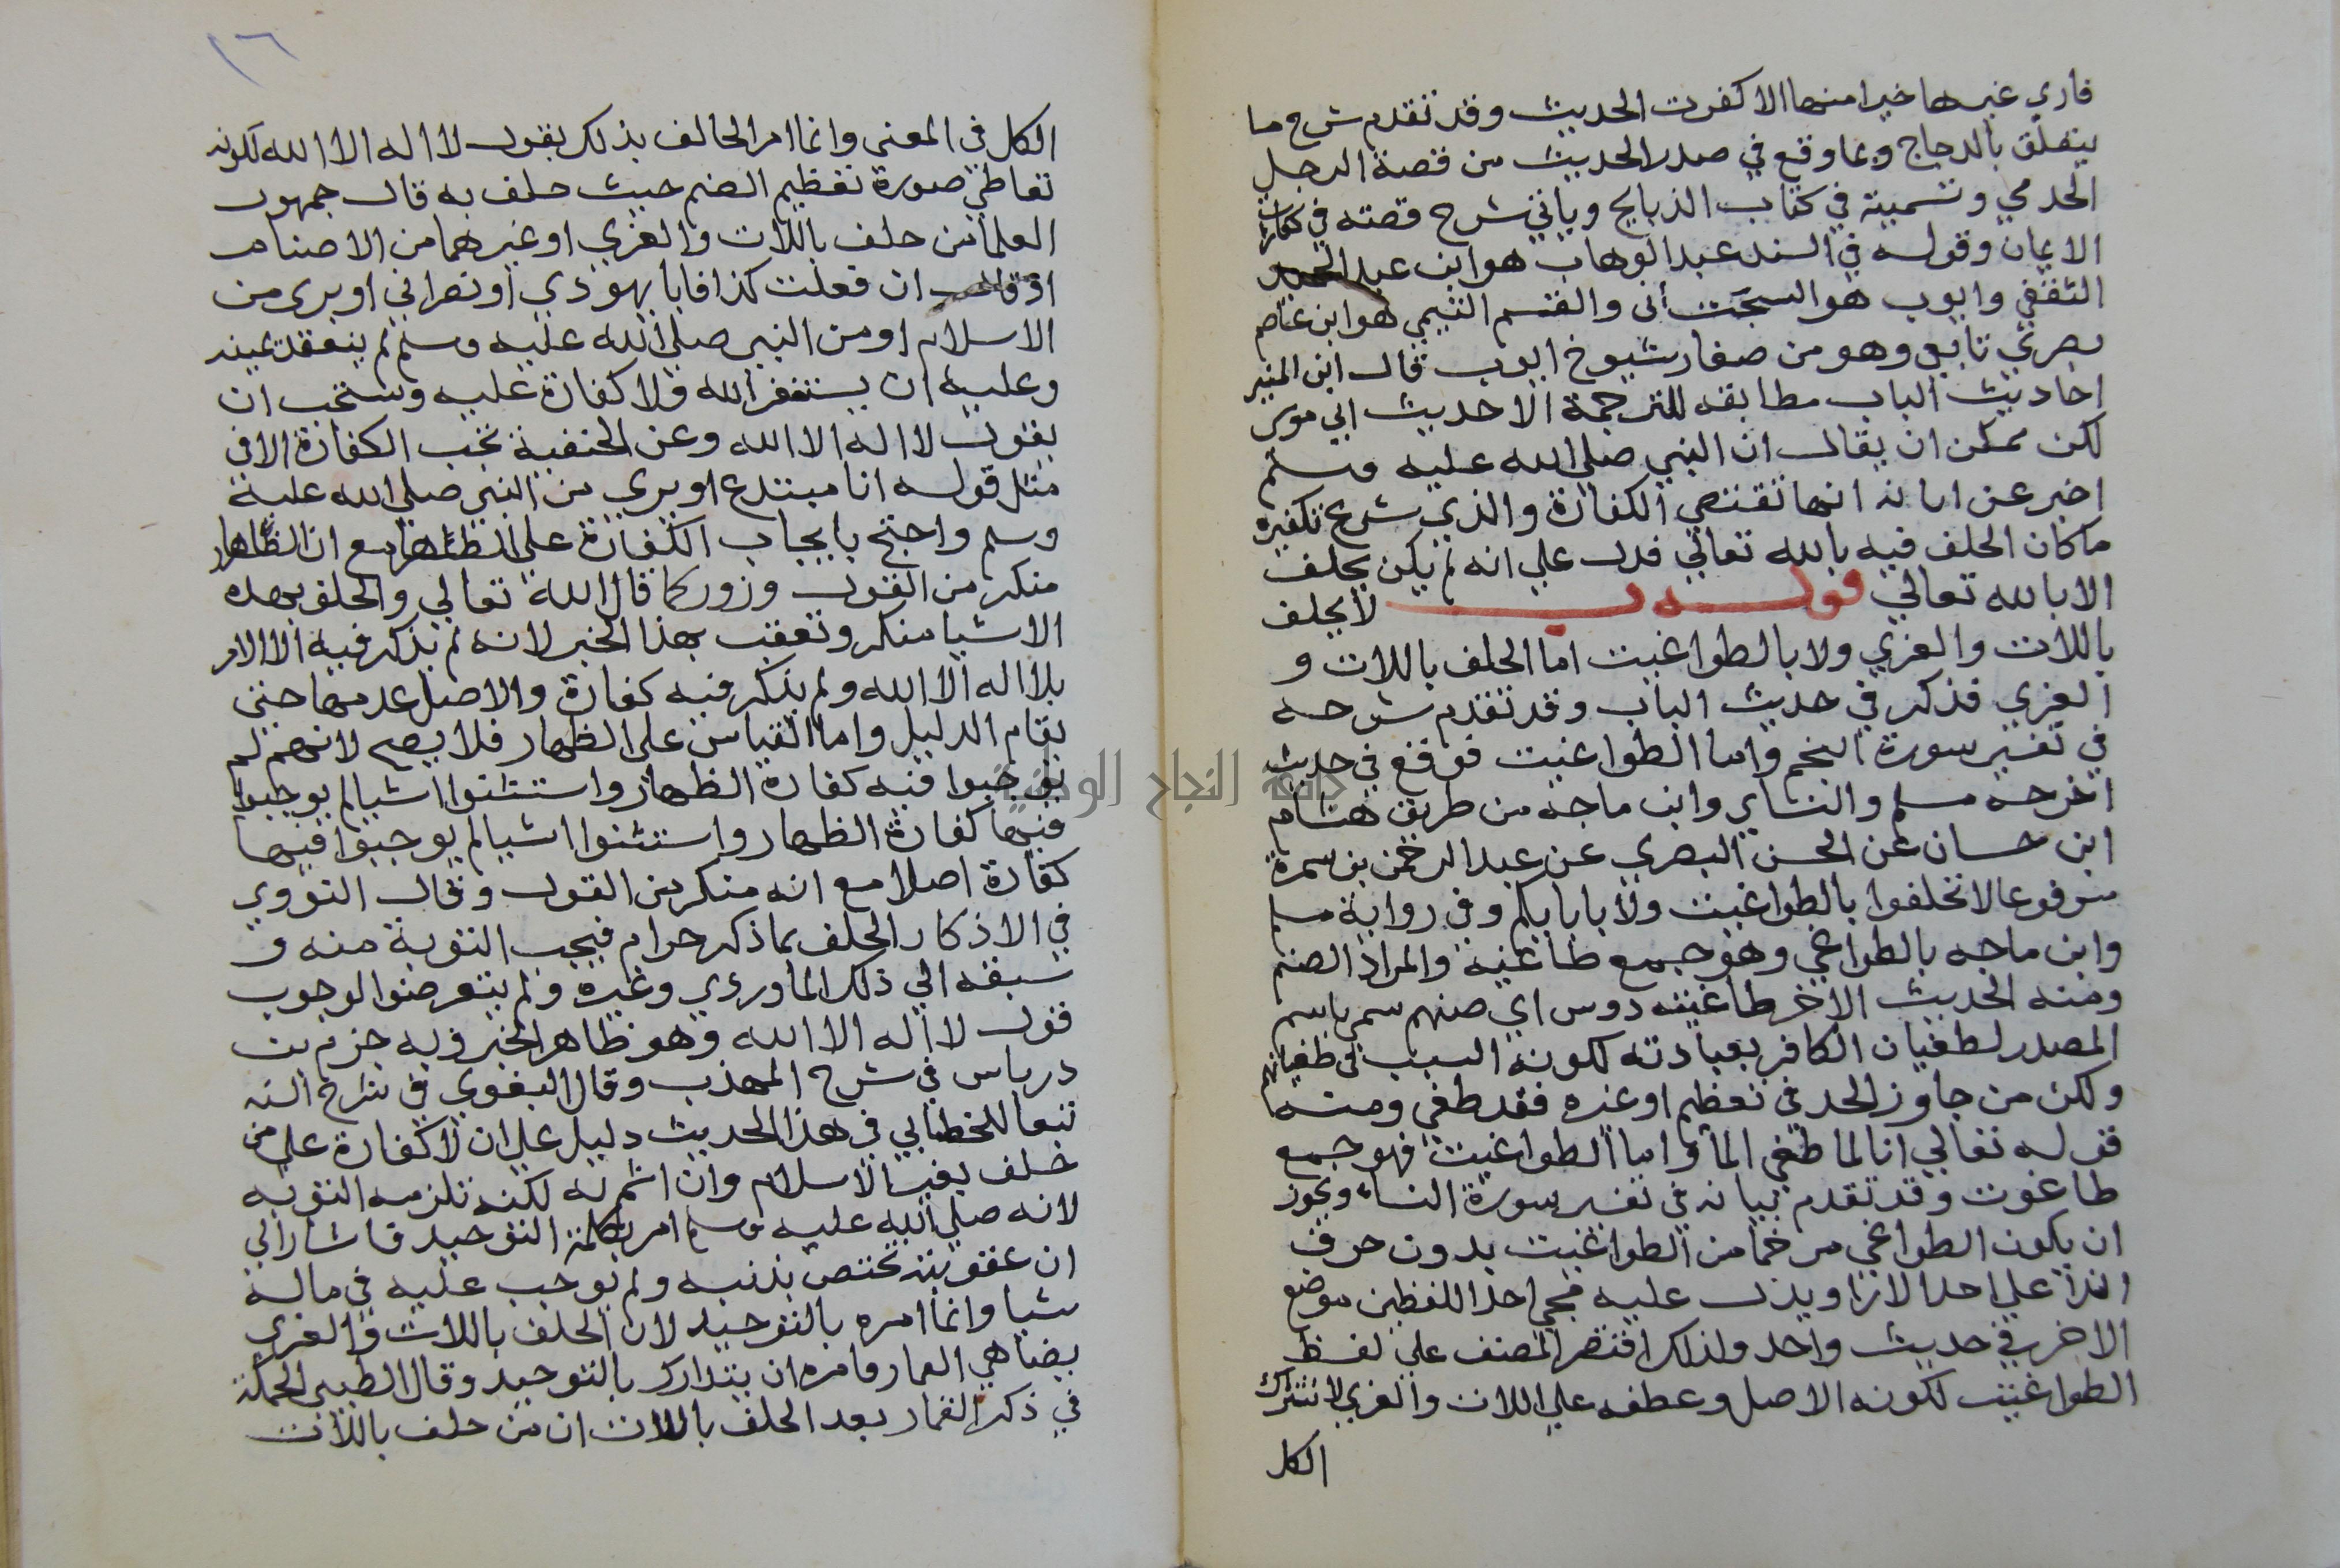 فاري غيرها خيرا منها الا كفرت الحديث وقد تقدم شرح ما
يتعلق بالدجاج وبما وقع في صدر الحديث من قصة الرجل
الجرمي وتسميته في كتاب الذبايح وياتي شرح قصته في كفارات
الايمان وقوله في السند عبد الوهاب هو ابن عبد المجيد
الثقفي وايوب هو السختياني والقسم التيمي هو ابن عاصم
بصري تابعي وهو من صغار شيوخ ايوب قال ابن المنير
احاديث الباب مطابقه للترجمة الا حديث ابي موسى
لكن يمكن ان يقال ان النبي صلي الله عليه وسلم
اخبر عن ايمانه انها تقتضي الكفارة والذي شرع تكفيره
ما كان الحلف فيه بالله تعالي فدل علي انه لم يكن يحلف
الا بالله تعالي قوله لا يحلف
باللات والعزي ولا بالطواغيت اما الحلف باللات و
العزي فذكر في حديث الباب وقد تقدم شرحه
في تفسير سورة النجم واما الطواغيت فوقع في حديث
اخرجه مسلم والنساي وابن ماجه من طريق هشام
ابن حسان عن الحسن البصري عن عبد الرحمن بن سمرة
مرفوعا لا تحلفوا بالطواغيت ولا بابايكم وفي رواية مسلم
وابن ماجه بالطواغي وهو جمع طاغية والمراد الصنم
ومنه الحديث الاخر طاغيته دوس اي صنهم سمي باسم
المصدر لطغيان الكافر بعبادته لكونه السبب في طغيانهم
ولكن من جاوز الحد في تعظيم او غيره فقد طغي ومنه
قوله تعالي انا لما طغي الما واما الطواغيت فهو جمع
طاغوت وقد تقدم بيانه في تفسير سورة النساء ويجوز
ان يكون الطواغي مرخما من الطواغيت بدون حرف
الندا علي احد الارا ويدل عليه مجي احد اللفظين موضع
الاخر في حديث واحد ولذلك اقتصر المصنف علي لفظ
الطواغيت لكونه الاصل وعطفه علي اللات والعزي لاشتراك
الكل
١٦
الكل في المعنى وانما امر الحالف بذلك بقول لا اله الا الله لكونه
تعاطي صورة تعظيم الصنم حيث حلف به قال جمهور
العلما من حلف باللات والعزي او غيرهما من الاصنام
او قال ان فعلت كذا فانا يهودي او نصراني او بري من
الاسلام او من النبي صلي الله عليه وسلم لم ينعقد يمينه
وعليه ان يستغفر الله ولا كفارة عليه ويستحب ان
يقول لا اله الا الله وعن الحنفية تجب الكفارة الا في
مثل قوله انا مبتدع او بري من النبي صلي الله عليه
وسلم واحتج بايجاب الكفارة علي المظاهر مع ان الظهار
منكر من القول وزور كما قال الله تعالي والحلف بهذه
الاشيا منكر وتعقب بهذا الخبر لانه لم يذكر فيه الا الامر
بلا اله الا الله ولم يذكر فيه كفارة والاصل عدمها حتي
يقام الدليل واما القياس علي الظهار فلا يصح لانهم لم
يوجبوا فيه كفارة الظهار واستثنوا اشيا لم يوجبوا
فيها كفارة الظهار واستثنوا اشيا لم يوجبوا فيها
كفارة اصلا مع انه منكر من القول وقال النووي
في الاذكار الحلف بما ذكر حرام فيجب التوبة منه و
سبقه الي ذلك الماوردي وغيره ولم يتعرضوا لوجوب
قول لا اله الا الله وهو ظاهر الخبر وبه جزم بن
درباس في شرح المهذب وقال البغوي في شرح السنه
تبعا للخطابي في هذا الحديث دليل علي ان لا كفارة علي من
حلف بغير الاسلام وان اثم به لكنه تلزمه التوبه
لانه صلي الله عليه وسلم امر بكلمة التوحيد فاشار الي
ان عقوبته تختص بذنبه ولم يوجب عليه في ماله
شيا وانما امره بالتوحيد لان الحلف باللات والعزي
يضاهي الكفار فامره ان يتدارك بالتوحيد وقال الطيبي الحكمة
في ذكر القمار بعد الحلف باللات ان من حلف باللات